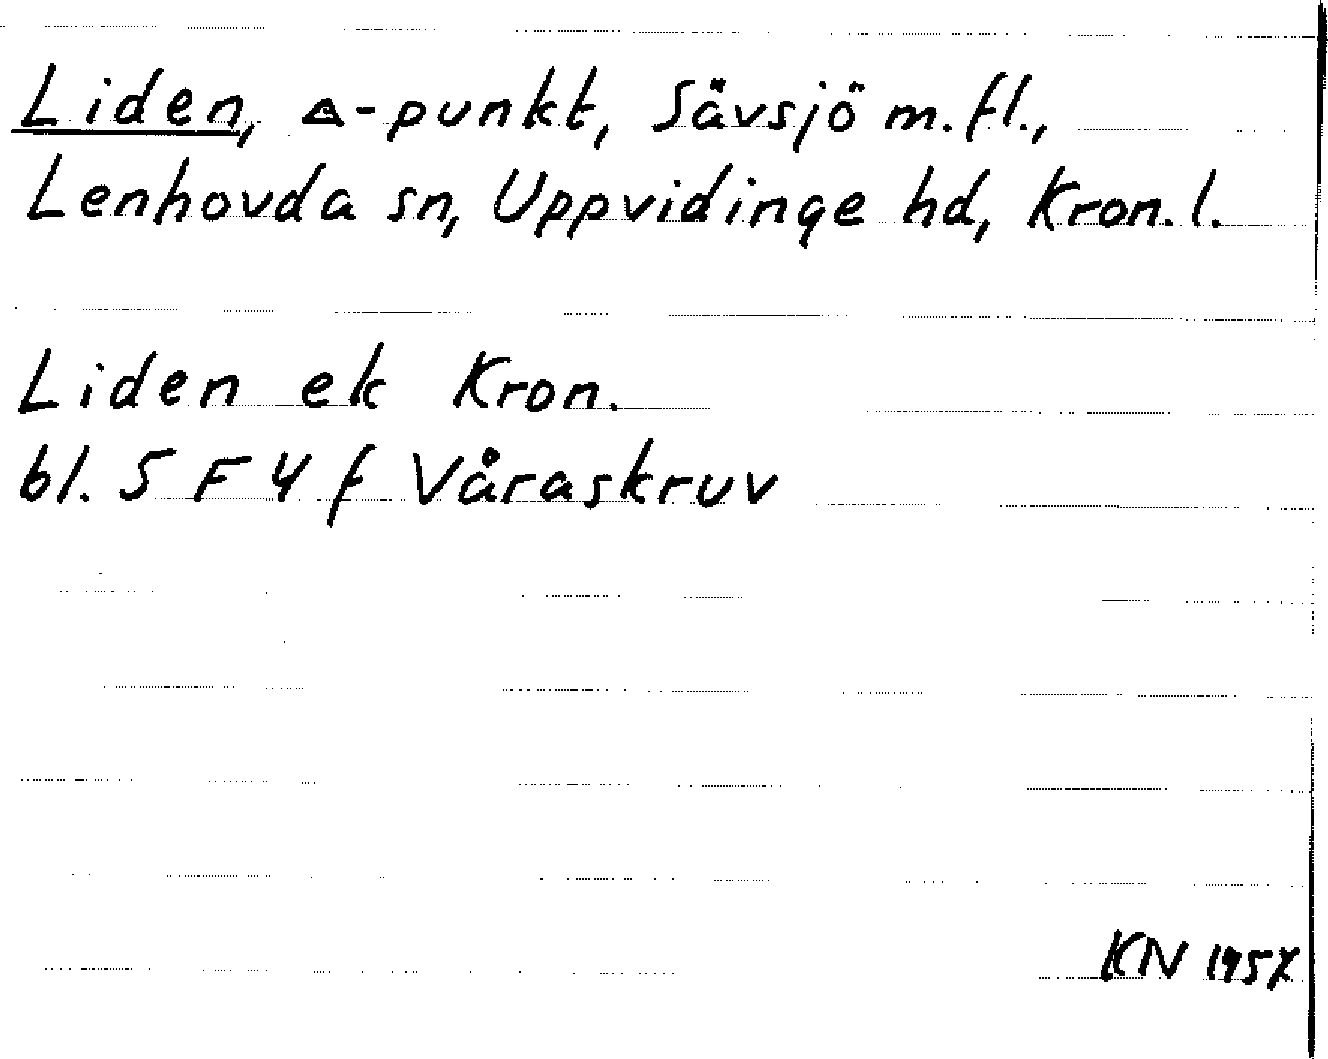 Liden, △-punkt, Sävsjö m.fl.,
Lenhovda sn, Uppvidinge hd, Kron.l.
Liden ek Kron.
bl. 5 F 4 f Våraskruv
KN 1957